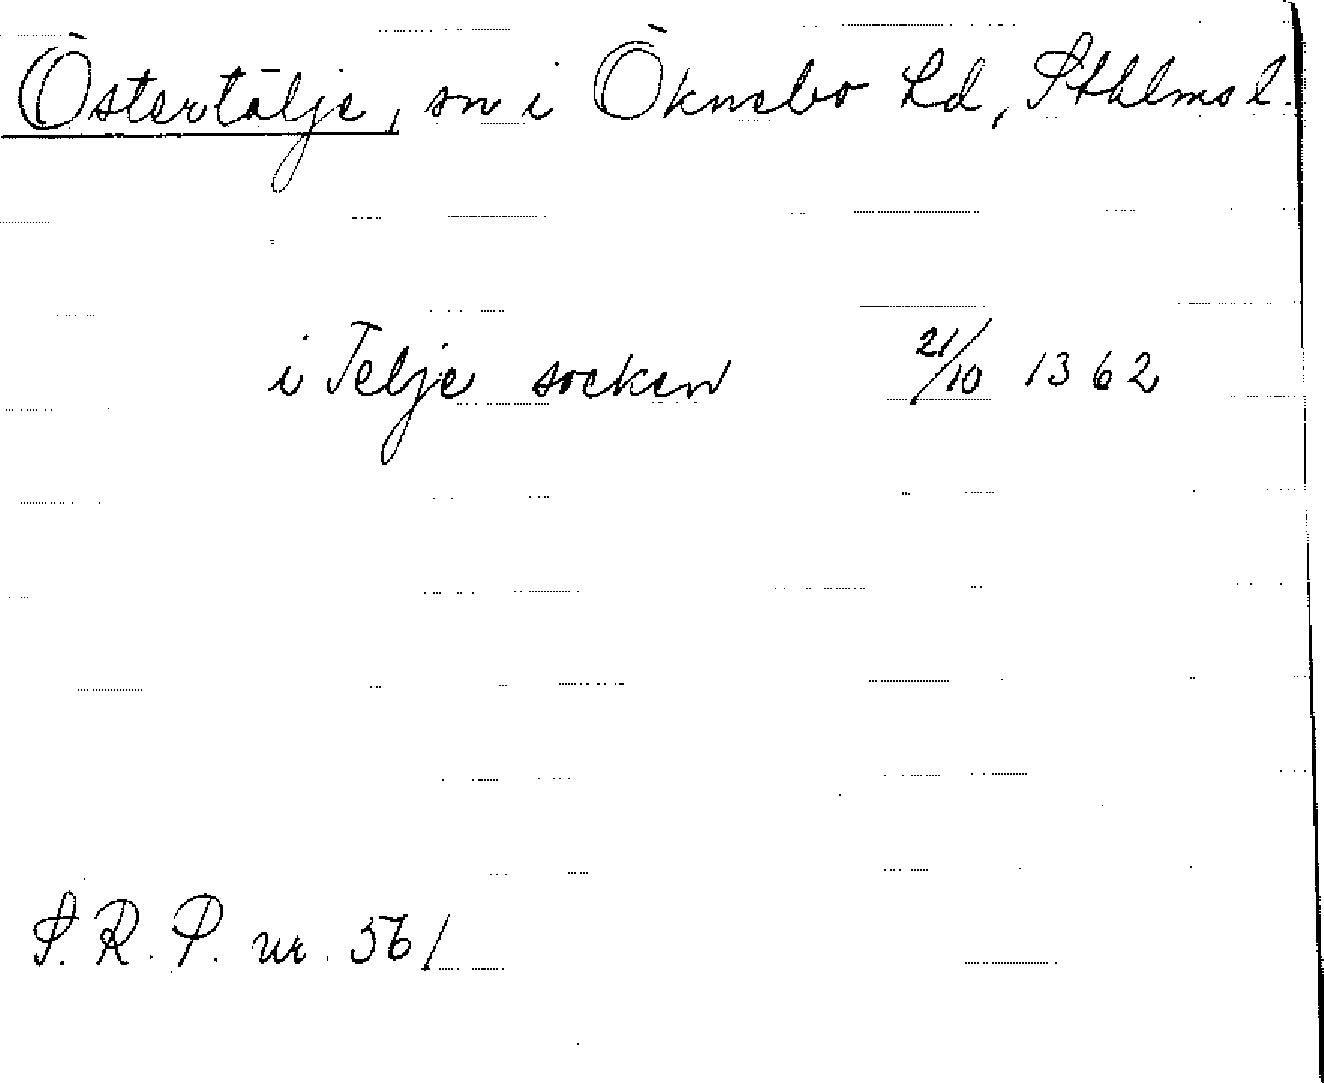 Östertälje, sn i Öknebo hd, Sthlms l.
i Telje socken 21/10 1362
S.R.P. nr. 561